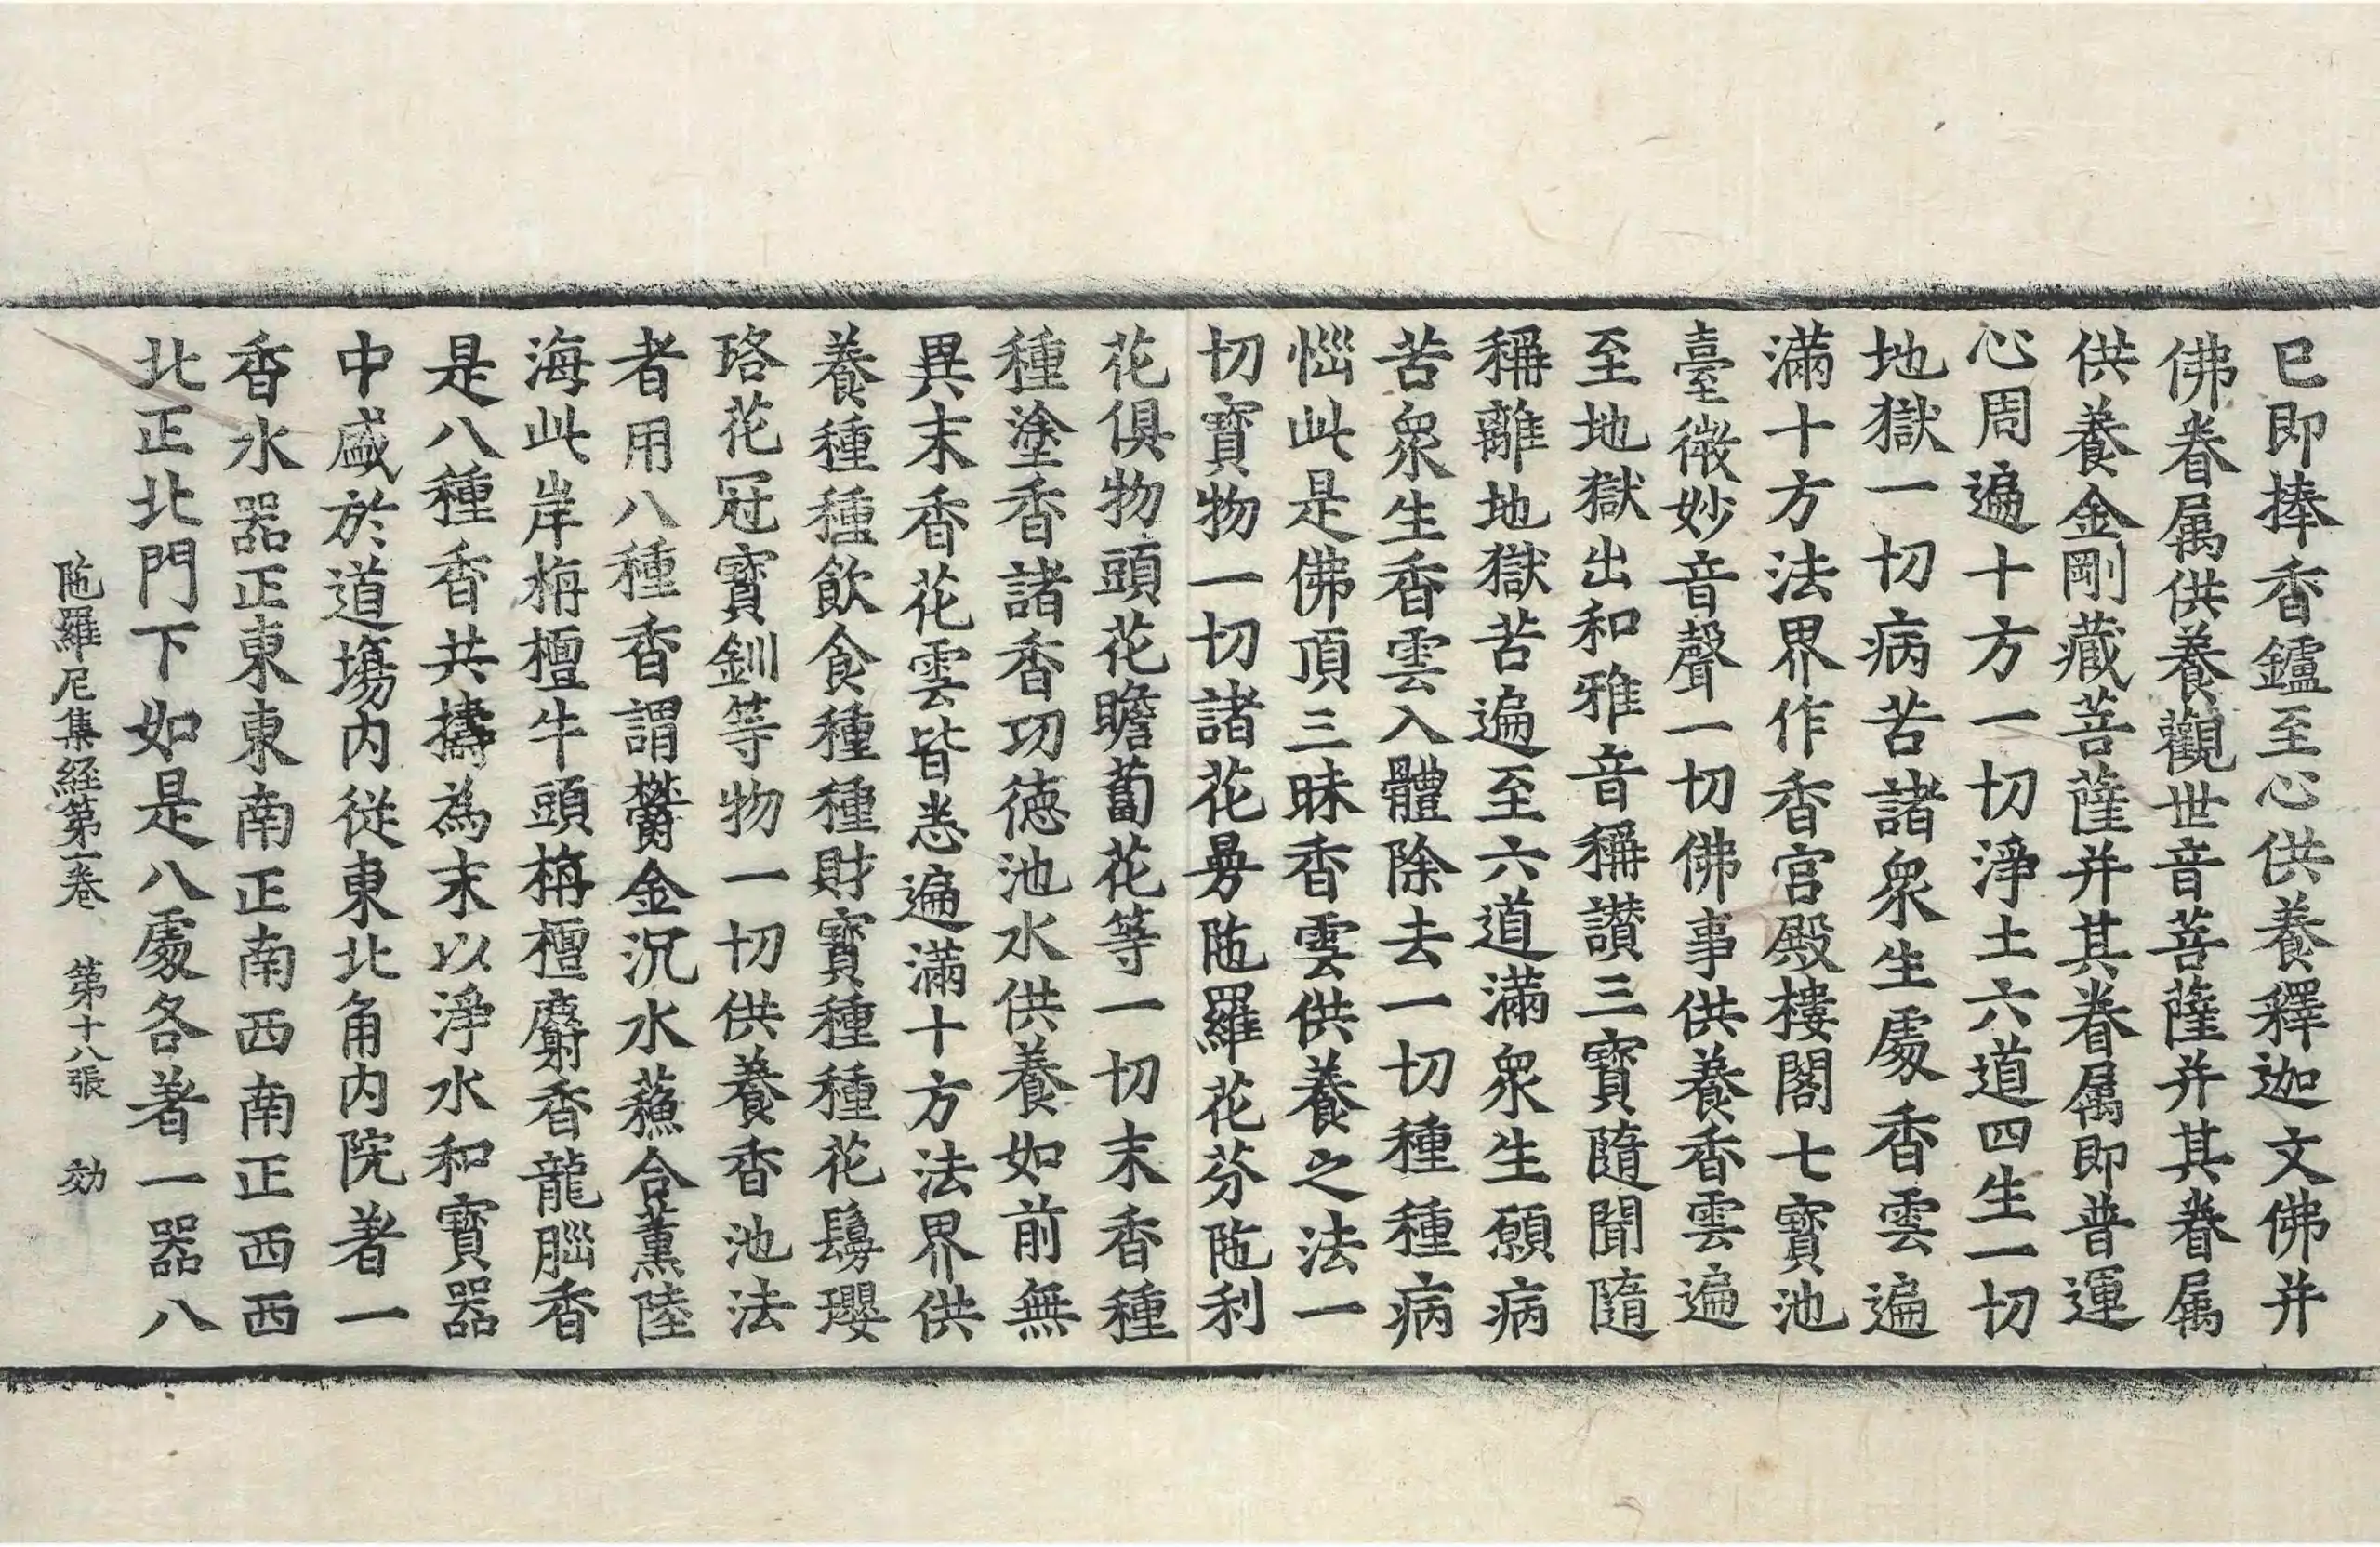 已即捧香鑪至心供養釋迦文佛并
佛眷属供養觀世音菩薩并其眷属
供養金剛藏菩薩并其眷属即普運
心周遍十方一切淨土六道四生一切
地獄一切病苦諸衆生處香雲遍
滿十方法界作香宮殿樓閣七寶池
臺微妙音聲一切佛事供養香雲遍
至地獄出和雅音稱讃三寶隨聞隨
稱離地獄苦遍至六道滿衆生願病
苦衆生香雲入體除去一切種種病
惱此是佛頂三昧香雲供養之法一
切寶物一切諸花曼陁羅花芬陁利
花俱物頭花瞻蔔花等一切末香種
種塗香諸香功德池水供養如前無
異末香花雲皆悉遍滿十方法界供
養種種飲食種種財寶種種花鬘瓔
珞花冠寶釧等物一切供養香池法
者用八種香謂欝金沉水蘓合薫陸
海此岸栴檀牛頭栴檀麝香龍腦香
是八種香共擣為末以淨水和寶器
中盛於道塲内從東北角内院著一
香水器正東東南正南西南正西西
北正北門下如是八處各著一器八
陁羅尼集経第一卷 第十八張 効